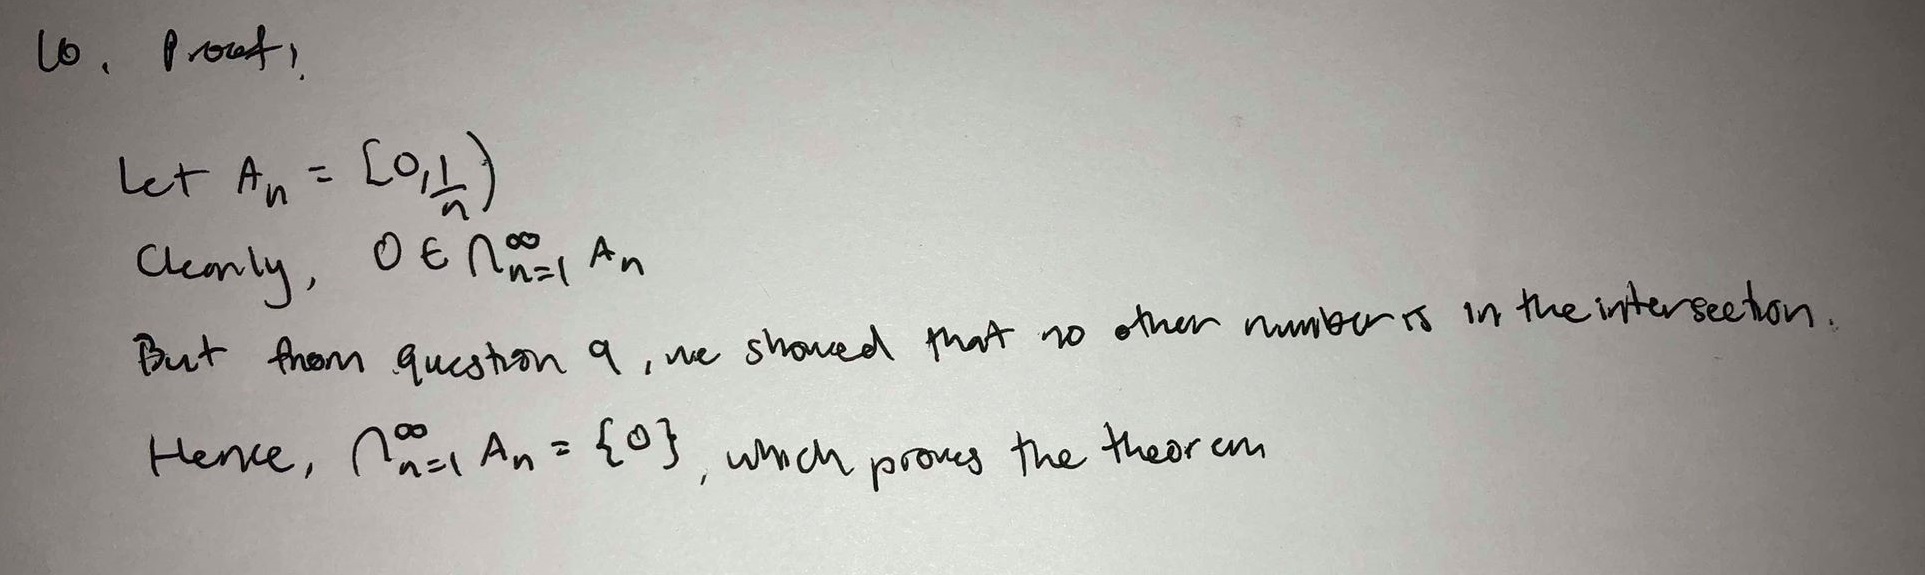 10. Proof:
Let An = [0, 1/n)
Clearly, 0 ∈ ⋂∞n=1 An
But from question 9, we showed that no other number is in the intersection.
Hence, ⋂∞n=1 An = {0}, which proves the theorem